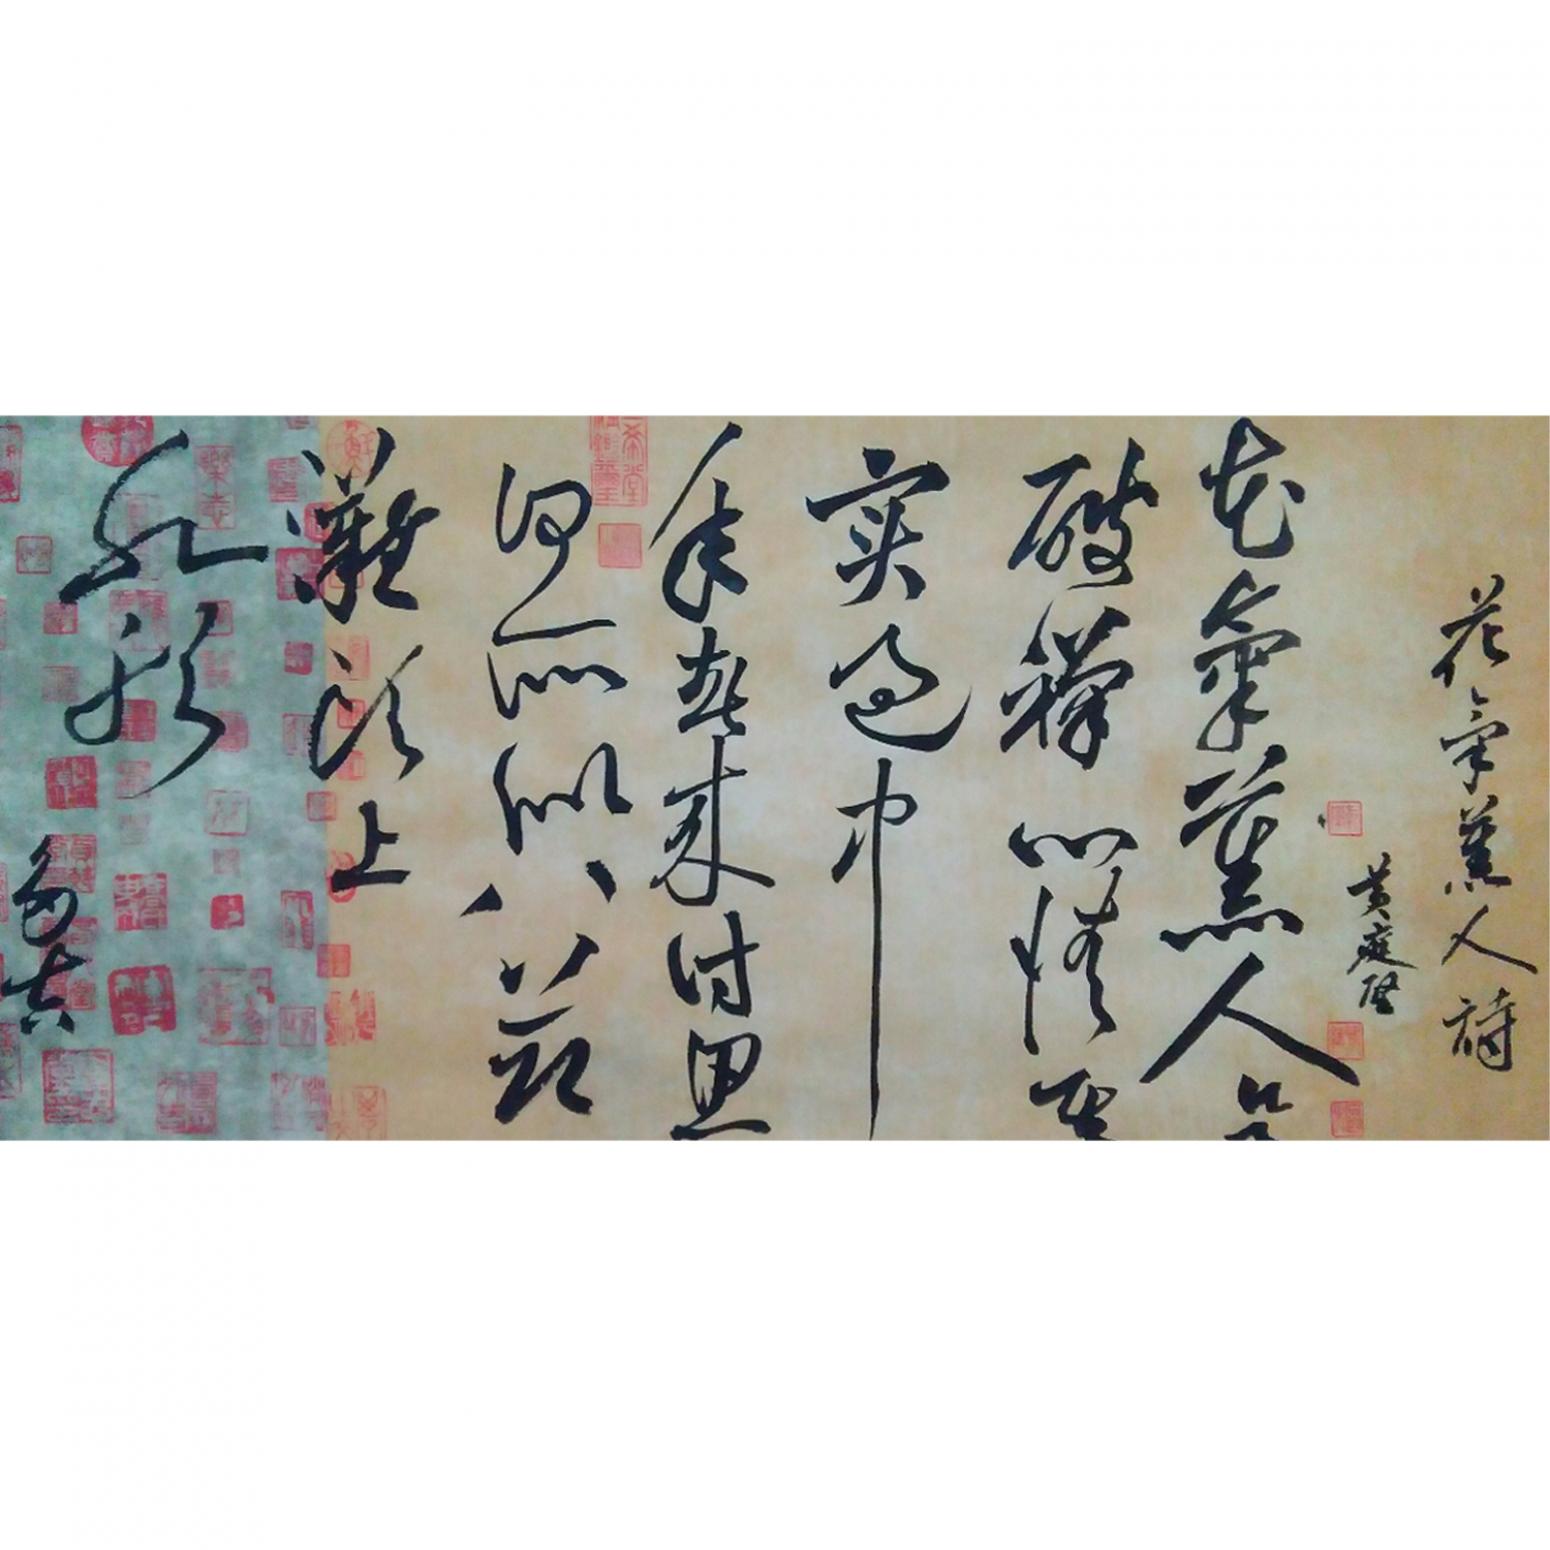 花氣薰人詩
黃庭堅
花氣薰人
破禪心情其
实過中
年春來詩思
何所似八節
灘頭上
水船